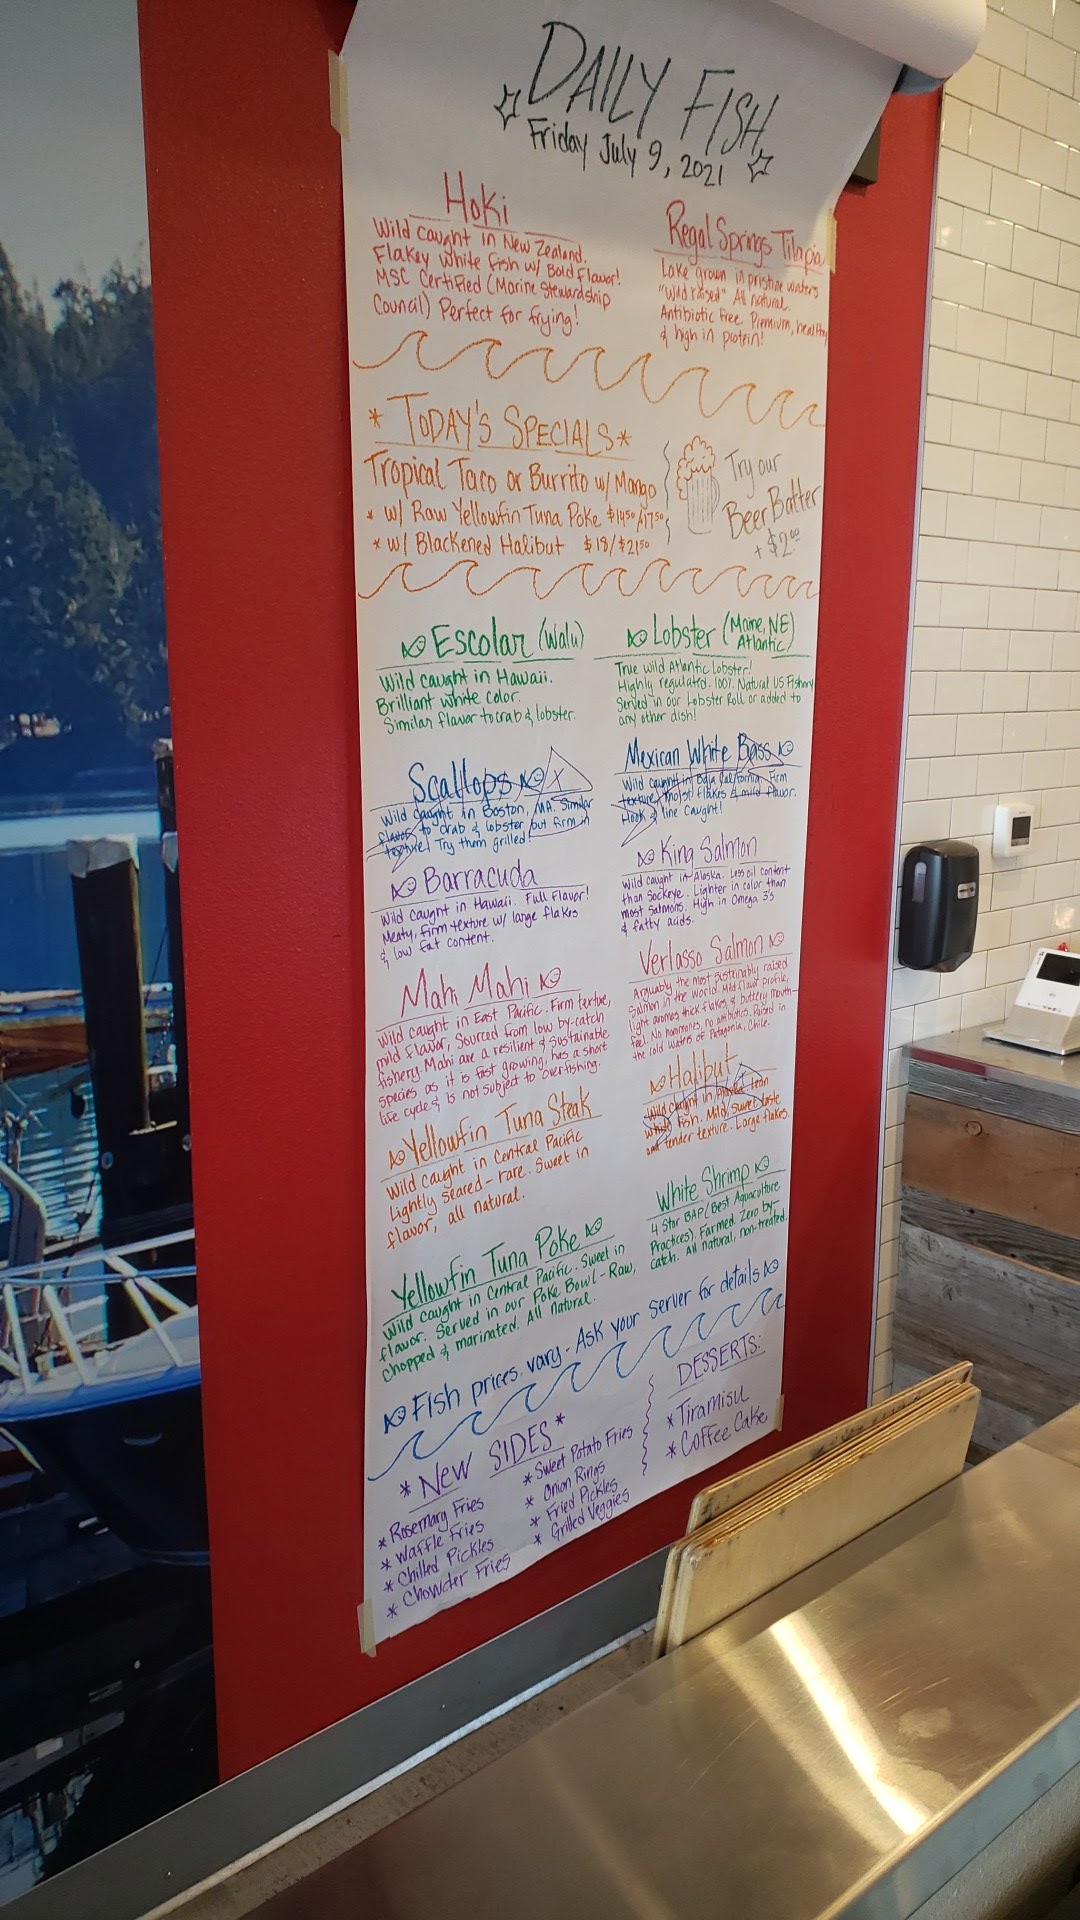 DAILY FISH
Friday July 9, 2021
Hoki
Wild caught in New Zealand.
Flakey white fish w/ Bold flavor!
MSC Certified (Marine Stewardship
Council) Perfect for frying!
Regal Springs Tilapia
Lake grown in pristine waters
"Wild raised" All natural.
Antibiotic free Premium, healthy
& high in protein!
* TODAY'S SPECIALS *
Tropical Taco or Burrito w/ Mango
* w/ Raw Yellowfin Tuna Poke $14.50/17.50
* w/ Blackened Halibut $18/$21.50
Try our
Beer Batter
+ $2.00
Escolar (Walu)
Wild caught in Hawaii.
Brilliant white color.
Similar flavor to crab & lobster.
Lobster (Maine, NE
Atlantic)
True wild Atlantic Lobster!
Highly regulated. 100% Natural US Fishery
Served in our Lobster Roll or added to
any other dish!
Scallops
Wild caught in Boston, MA. Similar
flavor to crab & lobster but firm in
texture! Try them grilled!
Mexican White Bass
Wild caught in Baja California. Firm
texture, moist flakes & mild flavor.
Hook & line caught!
Barracuda
Wild caught in Hawaii. Full Flavor!
Meaty, firm texture w/ large flakes
& low fat content.
King Salmon
Wild caught in Alaska. Less oil content
than Sockeye. Lighter in color than
most salmons. High in Omega 3's
& fatty acids.
Mahi Mahi
Wild caught in East Pacific. Firm texture,
mild flavor. Sourced from low by-catch
fishery. Mahi are a resilient & sustainable
species as it is fast growing, has a short
life cycle & is not subject to overfishing.
Verlasso Salmon
Arguably the most sustainably raised
Salmon in the world. Mild flavor profile,
light aromas thick flakes & buttery mouth-
feel. No hormones, no antibiotics. Raised in
the cold waters of Patagonia, Chile.
Yellowfin Tuna Steak
Wild caught in Central Pacific
Lightly seared - rare. Sweet in
flavor, all natural.
Halibut
Wild caught in Alaska Lean
white fish. Mild, sweet taste
and tender texture. Large flakes.
Yellowfin Tuna Poke
Wild caught in Central Pacific. Sweet in
flavor. Served in our Poke Bowl - Raw,
chopped & marinated. All Natural.
White Shrimp
4 Star BAP (Best Aquaculture
Practices). Farmed. Zero by-
catch. All natural, non-treated.
Fish prices vary - Ask your server for details
* NEW SIDES *
* Rosemary Fries
* Waffle Fries
* Chilled Pickles
* Chowder Fries
* Sweet Potato Fries
* Onion Rings
* Fried Pickles
* Grilled Veggies
DESSERTS:
* Tiramisu
* Coffee Cake